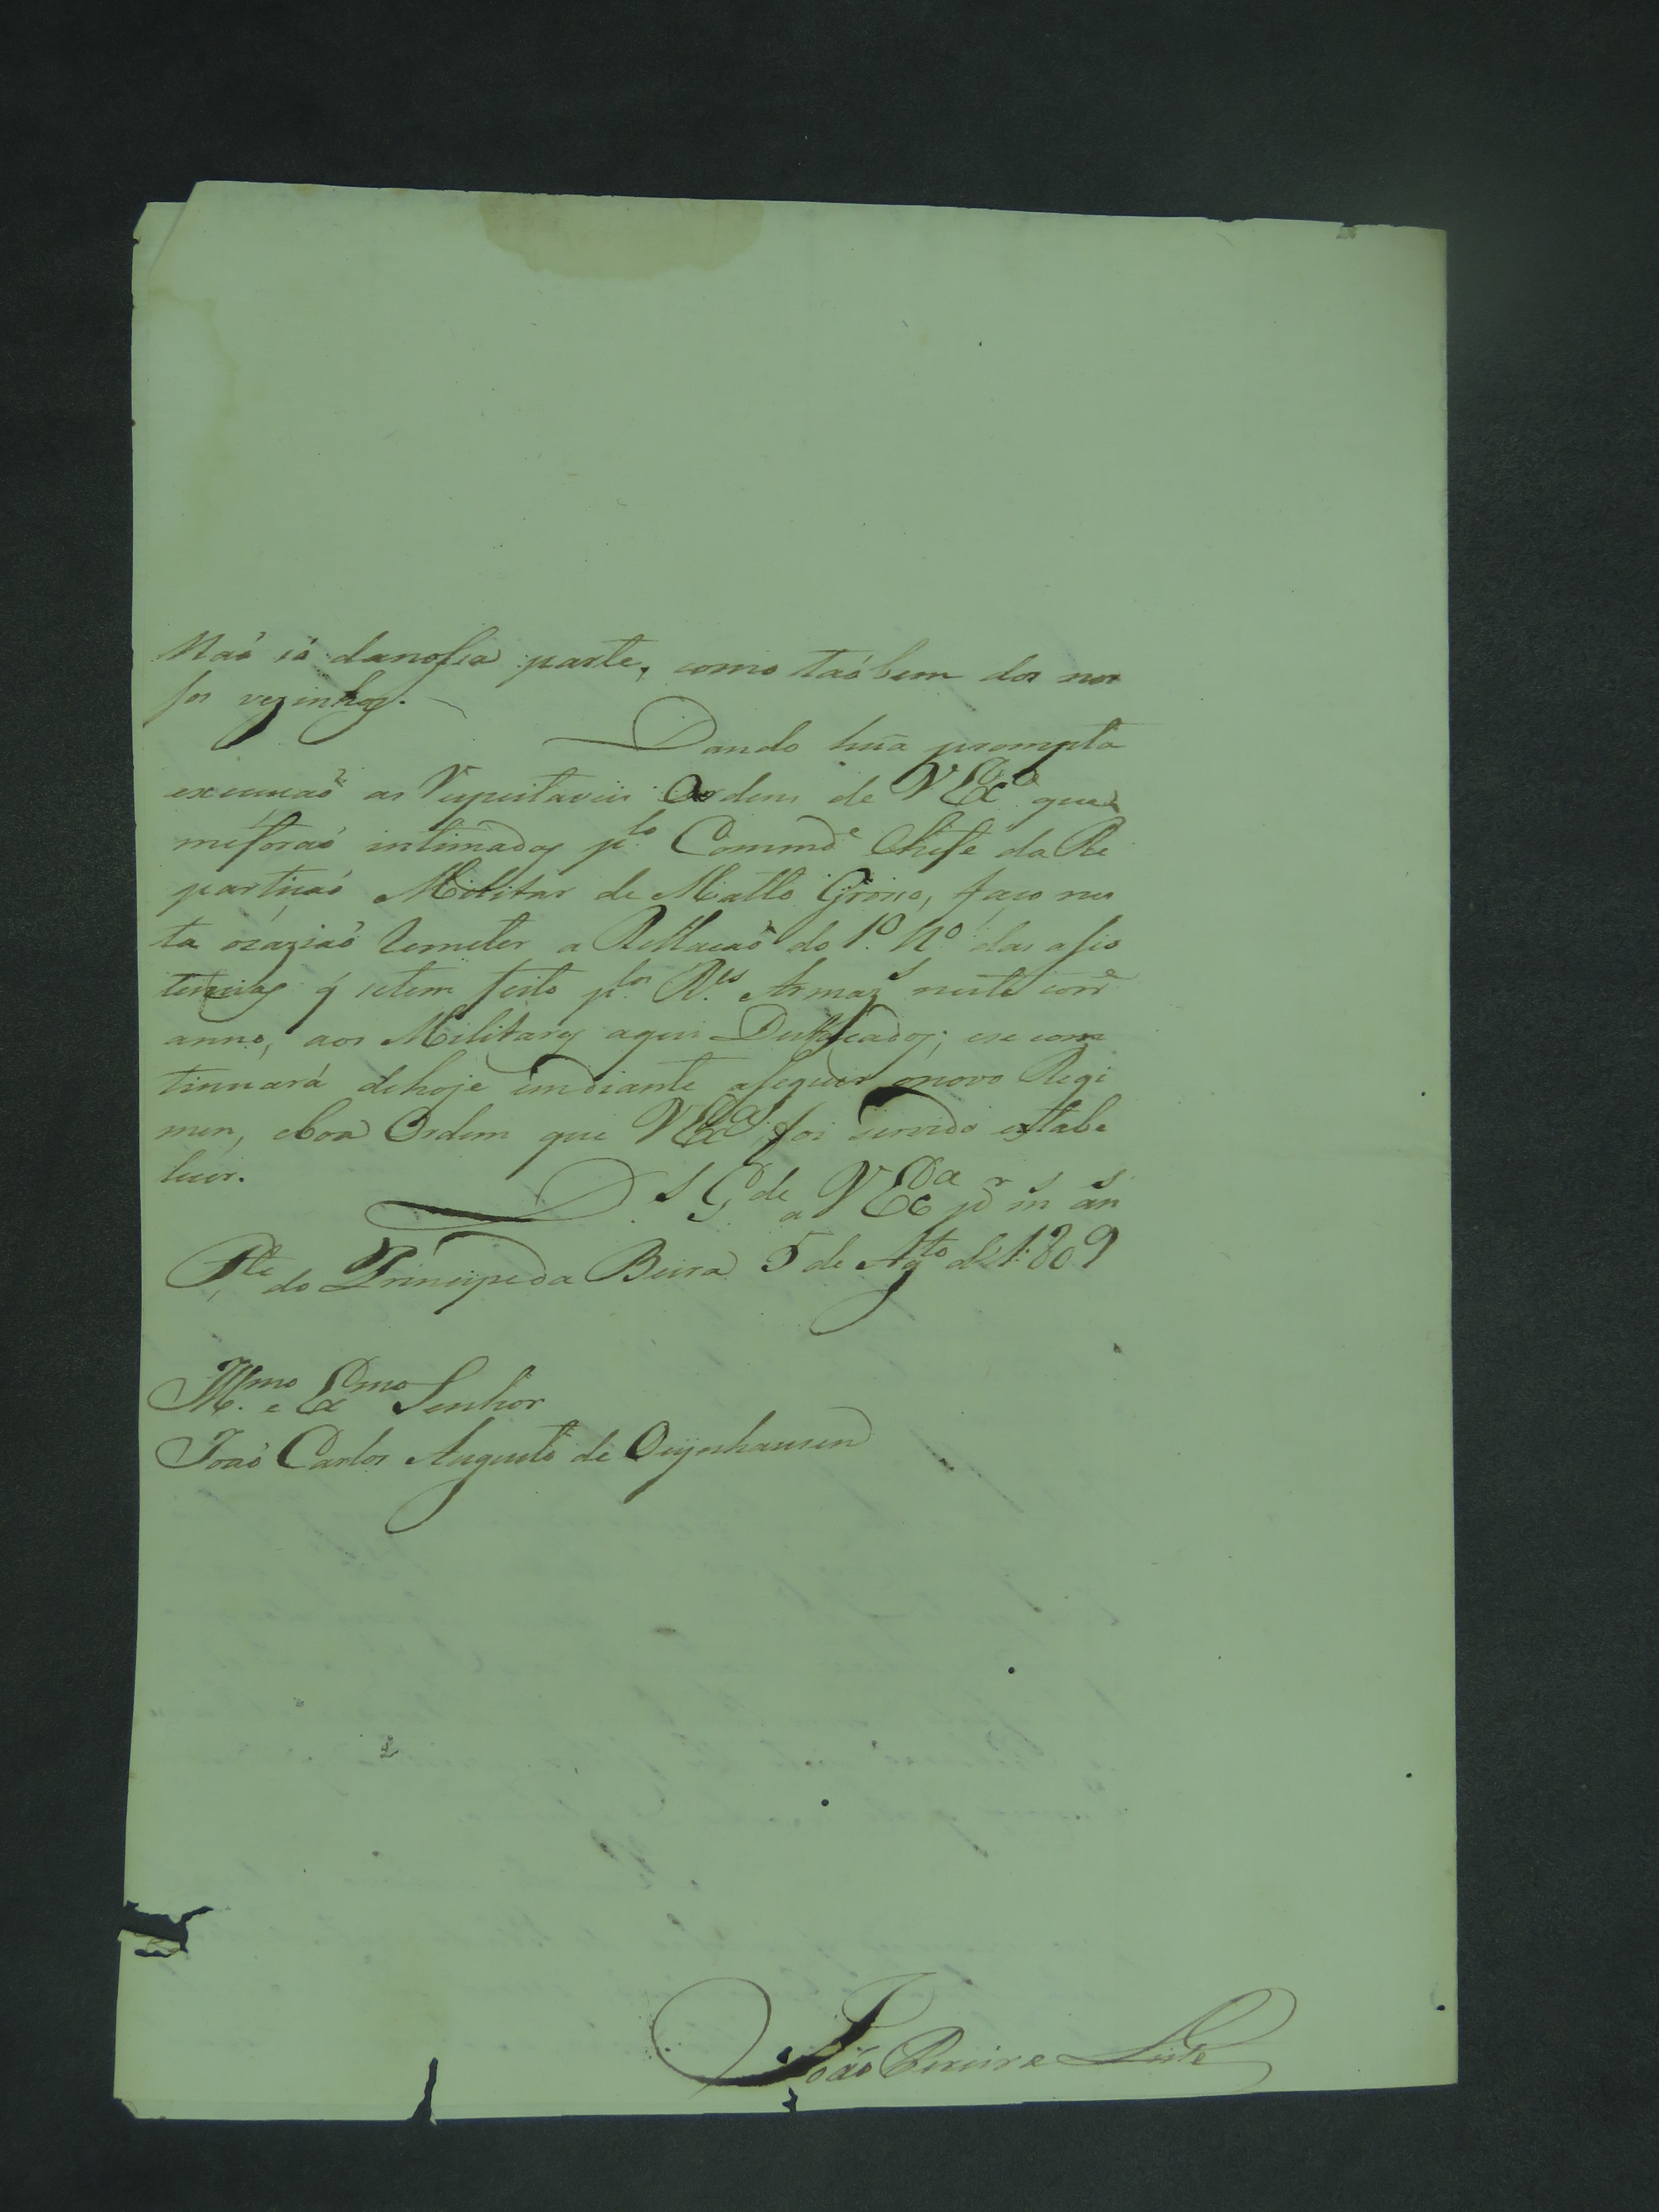 Naõ só danossa parte, como taõbem dos nos
sos vezinhos.
Dando hũa prompta
execuçaõ as Respeitaveis Ordens de VEx.ª que
meforaõ intimadas p.lo Comm.de Chefe da Re
partiçaõ Militar de Matto Groso, faço nes
ta ocaziaõ Remeter a Rellaçaõ do 1.º N.º das asis
tencias q̃ setem feito p.los R.es Armaz.s neste corr.e
anno, aos Militares aqui Destacados; ese con
tinuará dehoje emdiante aseguir onovo Regi
men, eboa Ordem que VEx.ª foi servido estabe
lecer.
D.s G.de a VEx.ª p.r m.s an.s
F.te do Principe da Beira 5 de Ag.to de 1809
Ill.mo e Ex.mo Senhor
Joaõ Carlos Augusto de Oeynhausen
Joaõ Pereira Leite